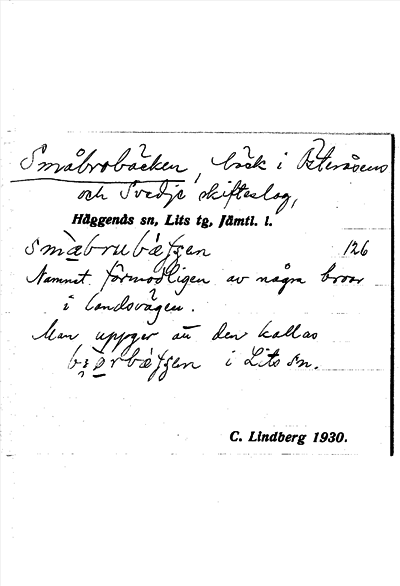 Småbrobäcken, bäck i Österåsens
och Svedje skifteslag,
Häggenås sn, Lits tg, Jämtl. l.
126
Namnet förmodligen av några broar
i landsvägen.
Man uppger att den kallas
i Lits sn.
C. Lindberg 1930.